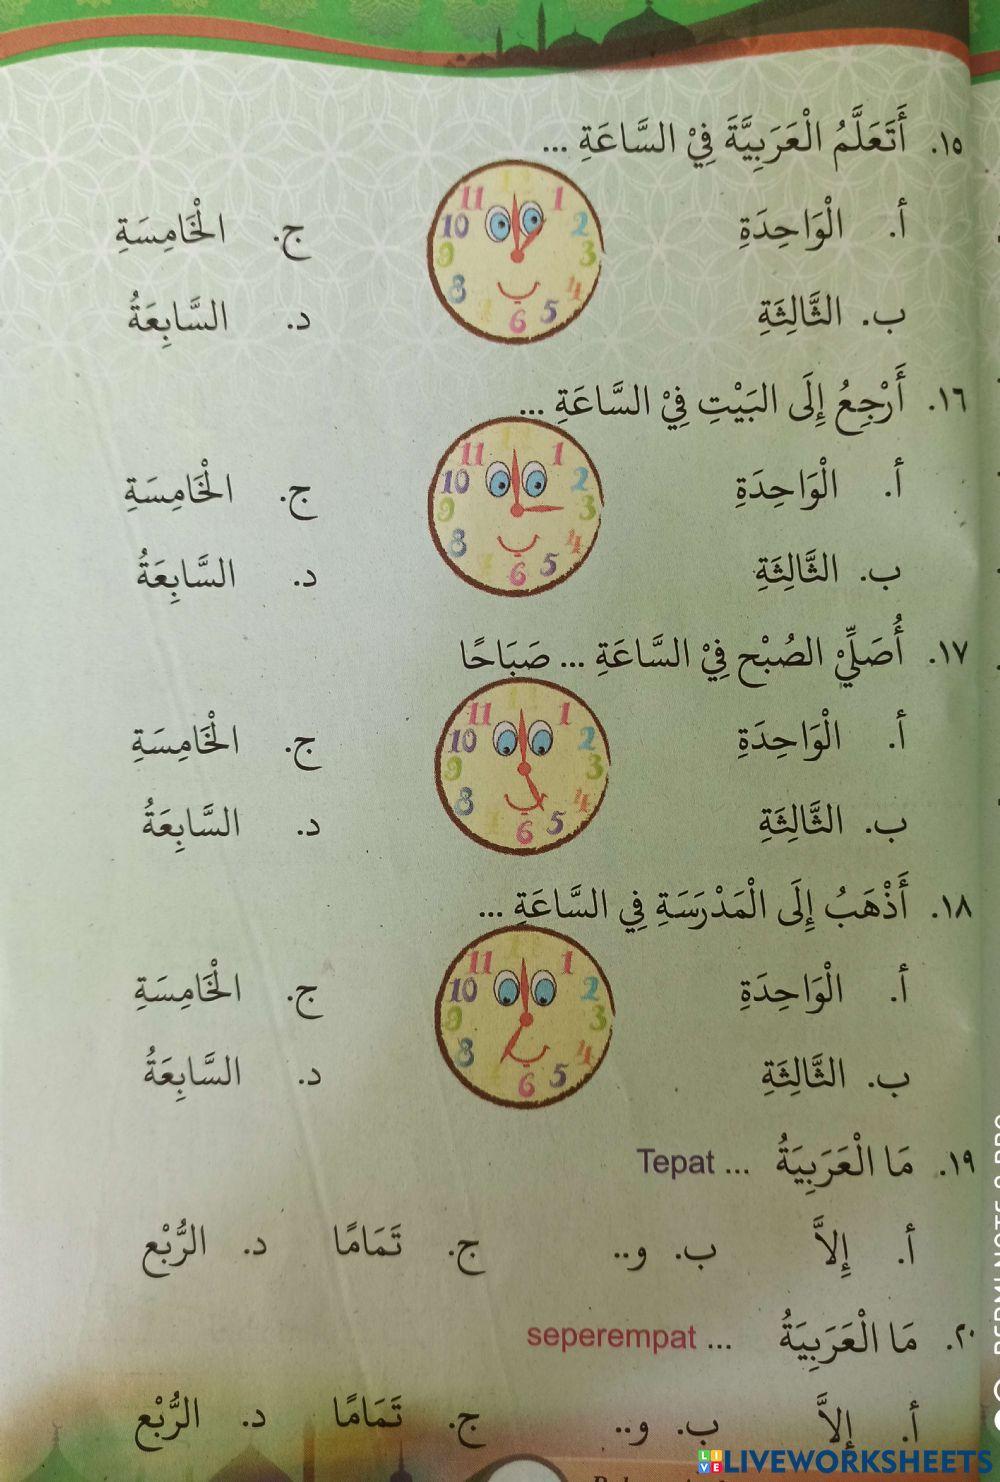 ١٥. أَتَعَلَّمُ الْعَرَبِيَّةَ فِيْ السَّاعَةِ ...
أ. الْوَاحِدَةِ ج. الْخَامِسَةِ
ب. الثَّالِثَةِ د. السَّابِعَةُ
11 1 10 2 9 3 8 4 6 5
١٦. أَرْجِعُ إِلَى البَيْتِ فِيْ السَّاعَةِ ...
أ. الْوَاحِدَةِ ج. الْخَامِسَةِ
ب. الثَّالِثَةِ د. السَّابِعَةُ
11 1 10 2 9 3 8 4 6 5
١٧. أُصَلِّيْ الصُبْح فِيْ السَّاعَةِ ... صَبَاحًا
أ. الْوَاحِدَةِ ج. الْخَامِسَةِ
ب. الثَّالِثَةِ د. السَّابِعَةُ
11 1 10 2 9 3 8 4 6 5
١٨. أَذْهَبُ إِلَى الْمَدْرَسَةِ فِي السَّاعَةِ ...
أ. الْوَاحِدَةِ ج. الْخَامِسَةِ
ب. الثَّالِثَةِ د. السَّابِعَةُ
11 1 10 2 9 3 8 4 6 5
١٩. مَا الْعَرَبِيَةُ ... Tepat
أ. إِلاَّ ب. و.. ج. تَمَامًا د. الرُّبْع
٢٠. مَا الْعَرَبِيَةُ ... seperempat
أ. إِلاَّ ب. و.. ج. تَمَامًا د. الرُّبْع
LIVEWORKSHEETS